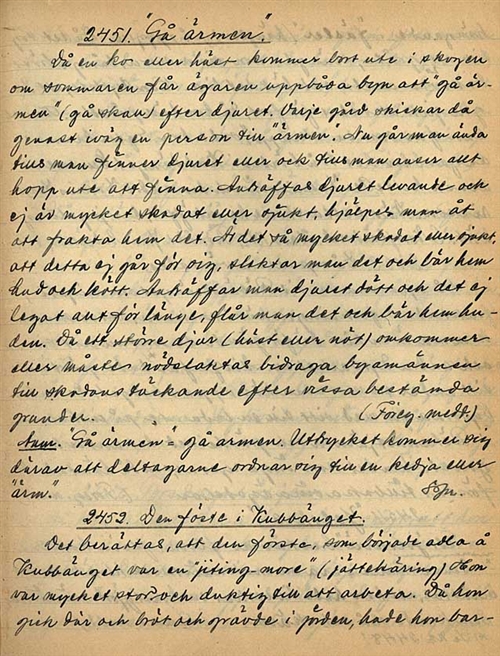 2451. "Gå ärmen".
Då en ko eller häst kommer bort ute i skogen
om sommaren får ägaren uppbåda byn att "gå är-
men" (gå skall) efter djuret. Varje gård skickar då
genast iväg en person till "ärmen. Nu går man ända
tills man finner djuret eller ock tills man anser allt
hopp ute att finna. Anträffas djuret levande och
ej är mycket skadat eller sjukt, hjälpes man åt
att frakta hem det. Är det så mycket skadat eller sjukt,
att detta ej går för sig, slaktar man det och bär hem
hud och kött. Anträffar man djuret dött och det ej
legat allt för länge, flår man det och bär hem hu-
den. Då ett större djur (häst eller nöt) omkommer
eller måste nödslaktas bidraga byamännen
till skadans täckande efter vissa bestämda
grunder. (Föreg. medd.)
Anm. "Gå ärmen" = gå armen. Uttrycket kommer sig
därav att deltagarne ordnar sig till en kedja eller
"ärm."
2452. Den föste i Kubbänget.
Det berättas, att den förste, som började odla å
Kubbänget var en "jiting-more" (jättekäring) Hon
var mycket stor och duktig till att arbeta. Då hon
gick där och bröt och grävde i jorden, hade hon bar-